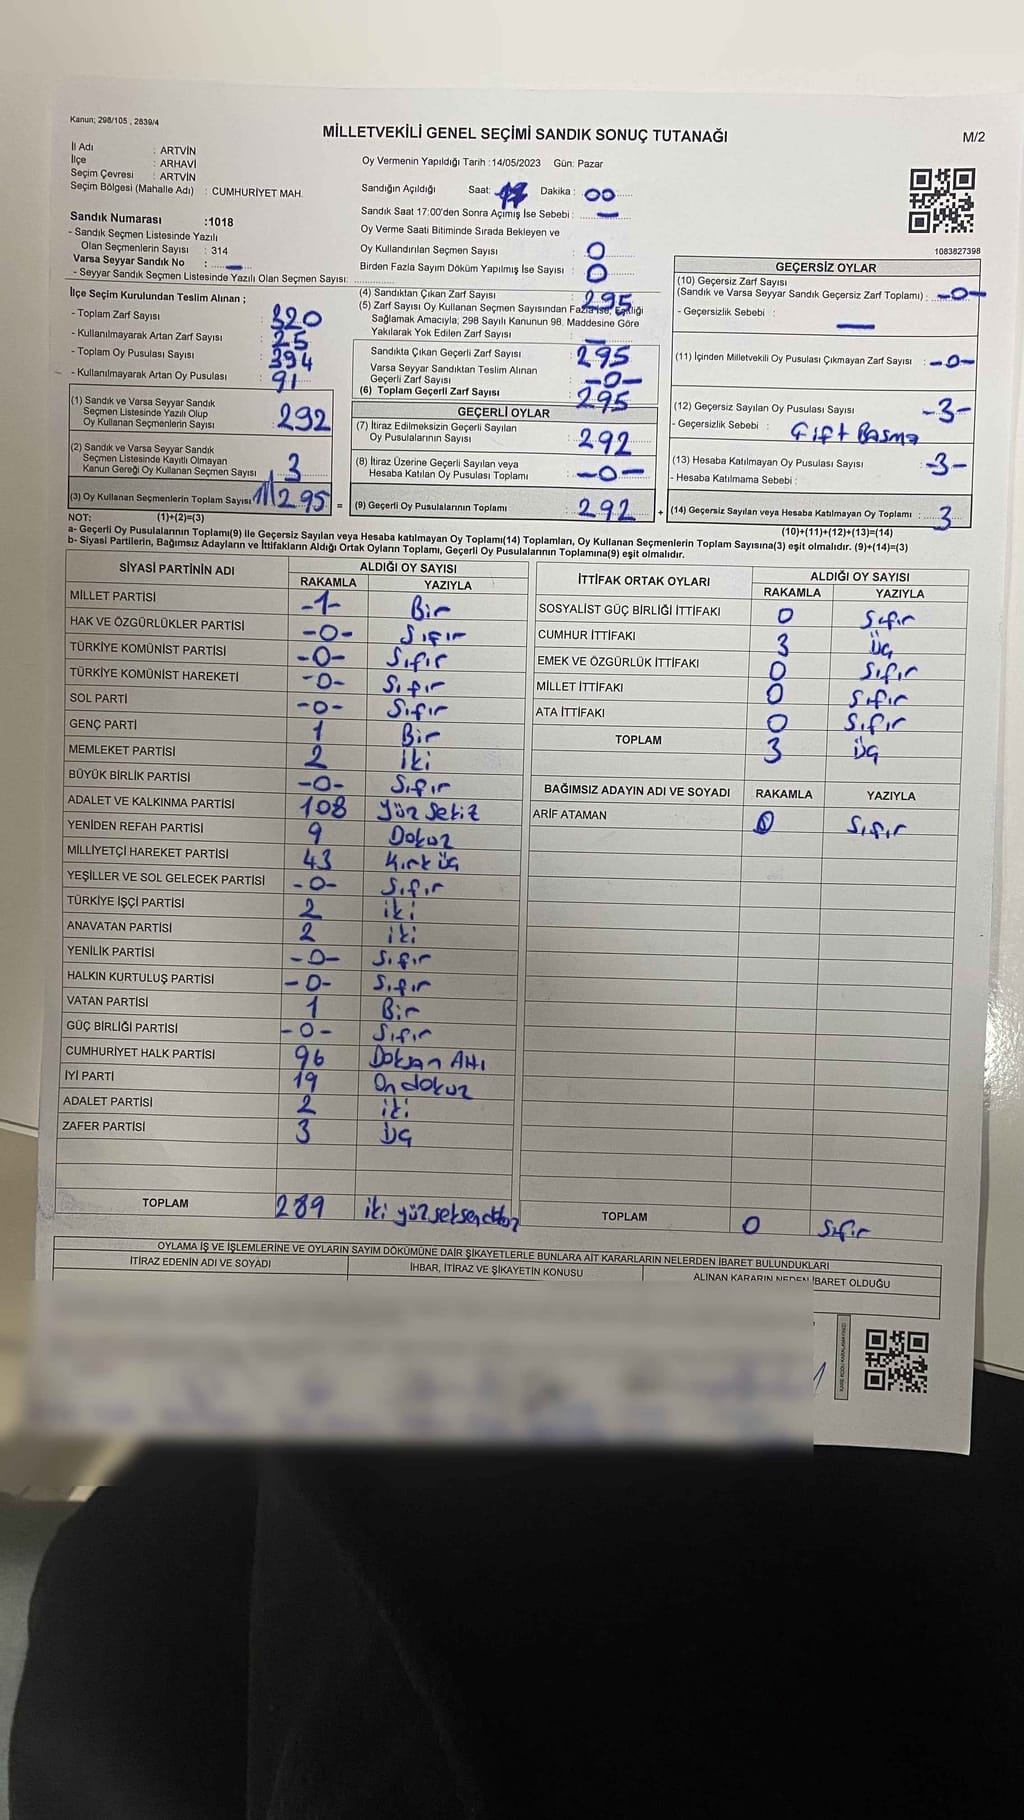 Kanun; 298/105 , 2839/4
MİLLETVEKİLİ GENEL SEÇİMİ SANDIK SONUÇ TUTANAĞI
M/2
İl Adı : ARTVİN
İlçe : ARHAVİ
Seçim Çevresi : ARTVİN
Seçim Bölgesi (Mahalle Adı) : CUMHURİYET MAH.
Sandık Numarası :1018
- Sandık Seçmen Listesinde Yazılı
Olan Seçmenlerin Sayısı : 314
Varsa Seyyar Sandık No : —
- Seyyar Sandık Seçmen Listesinde Yazılı Olan Seçmen Sayısı:
Oy Vermenin Yapıldığı Tarih :14/05/2023 Gün: Pazar
Sandığın Açıldığı Saat: 17 Dakika : 00
Sandık Saat 17:00'den Sonra Açımış İse Sebebi : —
Oy Verme Saati Bitiminde Sırada Bekleyen ve
Oy Kullandırılan Seçmen Sayısı : 0
Birden Fazla Sayım Döküm Yapılmış İse Sayısı : 0
1083827398
İlçe Seçim Kurulundan Teslim Alınan ;
- Toplam Zarf Sayısı : 320
- Kullanılmayarak Artan Zarf Sayısı : 25
- Toplam Oy Pusulası Sayısı : 394
- Kullanılmayarak Artan Oy Pusulası : 91
(1) Sandık ve Varsa Seyyar Sandık
Seçmen Listesinde Yazılı Olup
Oy Kullanan Seçmenlerin Sayısı : 292
(2) Sandık ve Varsa Seyyar Sandık
Seçmen Listesinde Kayıtlı Olmayan
Kanun Gereği Oy Kullanan Seçmen Sayısı : 3
(3) Oy Kullanan Seçmenlerin Toplam Sayısı 295 =
(4) Sandıktan Çıkan Zarf Sayısı : 295
(5) Zarf Sayısı Oy Kullanan Seçmen Sayısından Fazla ise, Eşitliği
Sağlamak Amacıyla; 298 Sayılı Kanunun 98. Maddesine Göre
Yakılarak Yok Edilen Zarf Sayısı : —
Sandıkta Çıkan Geçerli Zarf Sayısı : 295
Varsa Seyyar Sandıktan Teslim Alınan
Geçerli Zarf Sayısı : -0-
(6) Toplam Geçerli Zarf Sayısı : 295
GEÇERLİ OYLAR
(7) İtiraz Edilmeksizin Geçerli Sayılan
Oy Pusulalarının Sayısı : 292
(8) İtiraz Üzerine Geçerli Sayılan veya
Hesaba Katılan Oy Pusulası Toplamı : -0-
(9) Geçerli Oy Pusulalarının Toplamı : 292 +
GEÇERSİZ OYLAR
(10) Geçersiz Zarf Sayısı
(Sandık ve Varsa Seyyar Sandık Geçersiz Zarf Toplamı) : -0-
- Geçersizlik Sebebi : —
(11) İçinden Milletvekili Oy Pusulası Çıkmayan Zarf Sayısı : -0-
(12) Geçersiz Sayılan Oy Pusulası Sayısı -3-
- Geçersizlik Sebebi : Çift Basma
(13) Hesaba Katılmayan Oy Pusulası Sayısı : -3-
- Hesaba Katılmama Sebebi :
(14) Geçersiz Sayılan veya Hesaba Katılmayan Oy Toplamı : 3
NOT: (1)+(2)=(3)
(10)+(11)+(12)+(13)=(14)
a- Geçerli Oy Pusulalarının Toplamı(9) ile Geçersiz Sayılan veya Hesaba katılmayan Oy Toplamı(14) Toplamları, Oy Kullanan Seçmenlerin Toplam Sayısına(3) eşit olmalıdır. (9)+(14)=(3)
b- Siyasi Partilerin, Bağımsız Adayların ve İttifakların Aldığı Ortak Oyların Toplamı, Geçerli Oy Pusulalarının Toplamına(9) eşit olmalıdır.
SİYASİ PARTİNİN ADI ALDIĞI OY SAYISI
RAKAMLA YAZIYLA
MİLLET PARTİSİ -1- Bir
HAK VE ÖZGÜRLÜKLER PARTİSİ -0- Sıfır
TÜRKİYE KOMÜNİST PARTİSİ -0- Sıfır
TÜRKİYE KOMÜNİST HAREKETİ -0- Sıfır
SOL PARTİ -0- Sıfır
GENÇ PARTİ 1 Bir
MEMLEKET PARTİSİ 2 iki
BÜYÜK BİRLİK PARTİSİ -0- Sıfır
ADALET VE KALKINMA PARTİSİ 108 Yüz Sekiz
YENİDEN REFAH PARTİSİ 9 Dokuz
MİLLİYETÇİ HAREKET PARTİSİ 43 Kırk üç
YEŞİLLER VE SOL GELECEK PARTİSİ -0- Sıfır
TÜRKİYE İŞÇİ PARTİSİ 2 iki
ANAVATAN PARTİSİ 2 iki
YENİLİK PARTİSİ -0- Sıfır
HALKIN KURTULUŞ PARTİSİ -0- Sıfır
VATAN PARTİSİ 1 Bir
GÜÇ BİRLİĞİ PARTİSİ -0- Sıfır
CUMHURİYET HALK PARTİSİ 96 Doksan Altı
İYİ PARTİ 19 On dokuz
ADALET PARTİSİ 2 iki
ZAFER PARTİSİ 3 Üç
TOPLAM 289 iki yüz seksen dokuz
İTTİFAK ORTAK OYLARI ALDIĞI OY SAYISI
RAKAMLA YAZIYLA
SOSYALİST GÜÇ BİRLİĞİ İTTİFAKI 0 Sıfır
CUMHUR İTTİFAKI 3 Üç
EMEK VE ÖZGÜRLÜK İTTİFAKI 0 Sıfır
MİLLET İTTİFAKI 0 Sıfır
ATA İTTİFAKI 0 Sıfır
TOPLAM 3 Üç
BAĞIMSIZ ADAYIN ADI VE SOYADI RAKAMLA YAZIYLA
ARİF ATAMAN 0 Sıfır
TOPLAM 0 Sıfır
OYLAMA İŞ VE İŞLEMLERİNE VE OYLARIN SAYIM DÖKÜMÜNE DAİR ŞİKAYETLERLE BUNLARA AİT KARARLARIN NELERDEN İBARET BULUNDUKLARI
İTİRAZ EDENİN ADI VE SOYADI İHBAR, İTİRAZ VE ŞİKAYETİN KONUSU ALINAN KARARIN NEDEN İBARET OLDUĞU